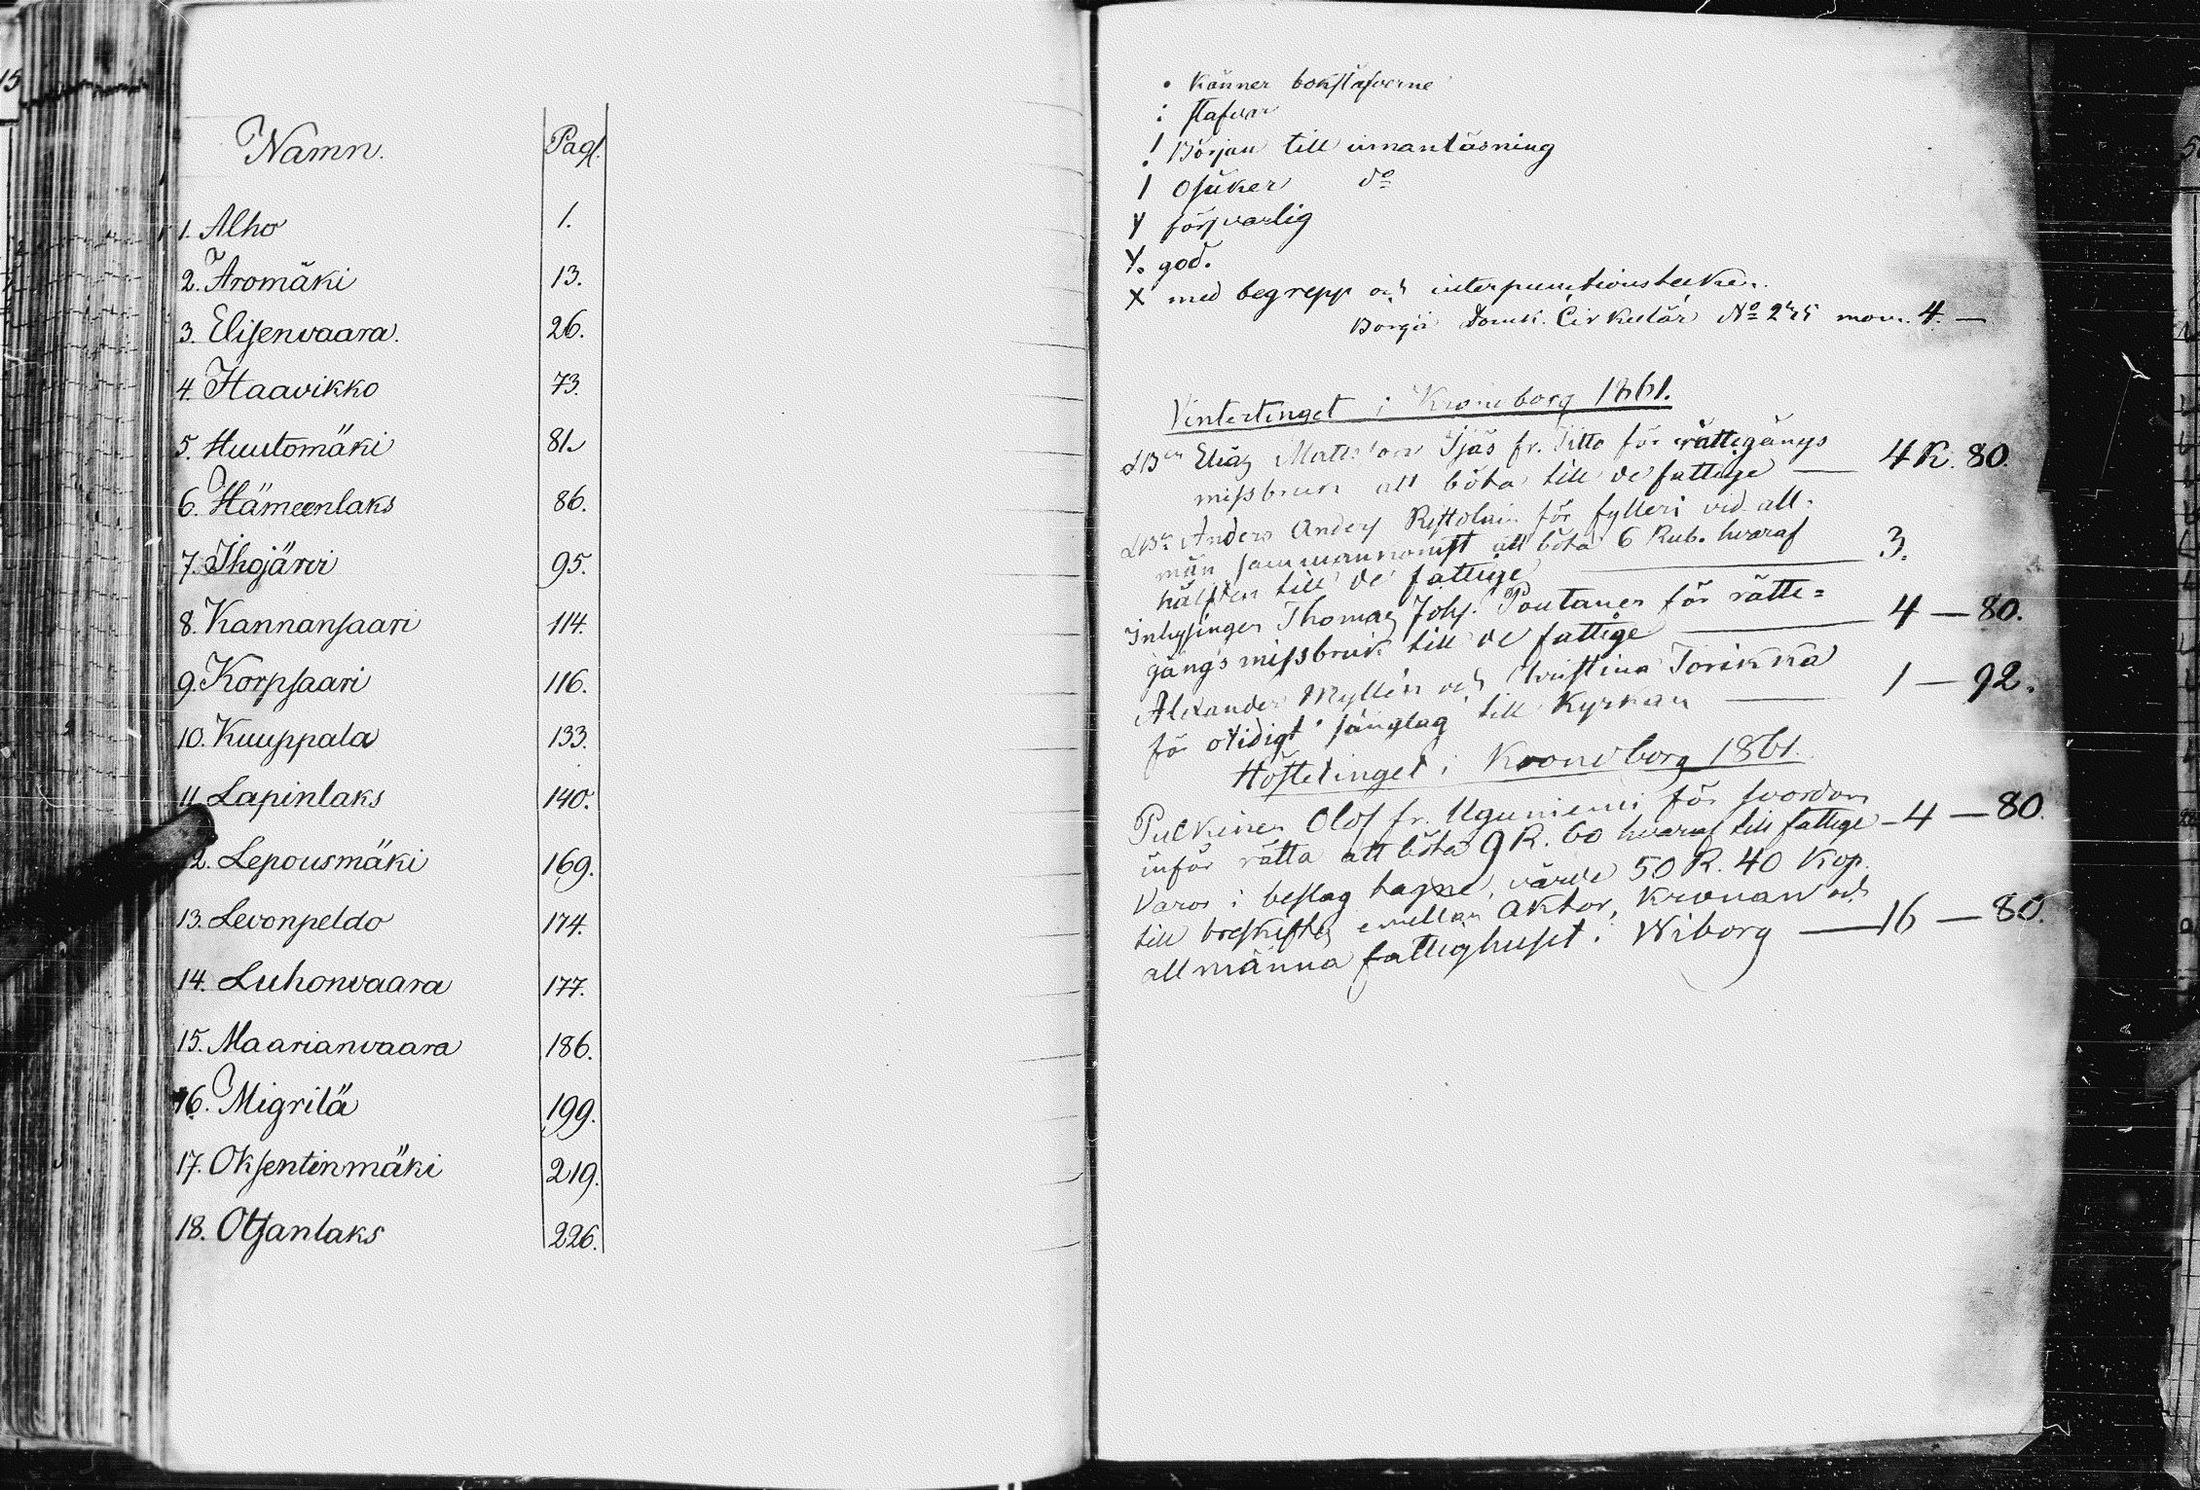 Namn. Pag.
1. Alho 1.
2. Aromäki 13.
3. Elisenvaara. 26.
4. Haavikko 73.
5. Huutomäki 81.
6. Hämeenlaks 86.
7. Ihojärvi 95.
8. Kannansaari 114.
9. Korpsaari 116.
10. Kuuppala 133.
11. Lapinlaks 140.
12. Lepousmäki 169.
13. Levonpeldo 174.
14. Luhonvaara 177.
15. Maarianvaara 186.
16. Migrilä 199.
17. Oksentinmäki 219.
18. Otsanlaks 226.
• Känner bokstäfverne
: stafvar
! Början till innanläsning
1 Osäker do
Y försvarlig
Y. god.
X med begrepp och interpunctionstecken.
Borgå Domk. Cirkulär No 245 mom. 4. —
Vintertinget i Kroneborg 1861.
Elias Mattsson Ijäs fr. Titto för rättegångs
missbruk att böta till de fattige — 4 K. 80.
Anders Anders Ryttolain för fylleri vid all-
män sammankomst att böta 6 Rub. hvaraf
hälften till de fattige — 3.
Inhysingen Thomas Johs. Poutanen för rätte=
gångs missbruk till de fattige — 4 — 80.
Alexander Myllén och Christina Torikka
för otidigt sänglag till Kyrkan — 1 — 92.
Höstetinget i Kroneborg 1861.
Pulkinen Olof fr. Uguniemi för svordom
inför rätta att böta 9 R. 60 hvaraf till fattige - 4 — 80.
Varor i beslag tagne, värde 50 R. 40 Kop.
till treskiftes emellan Aktor, Kronan och
allmänna fattighuset i Wiborg — 16 — 80.